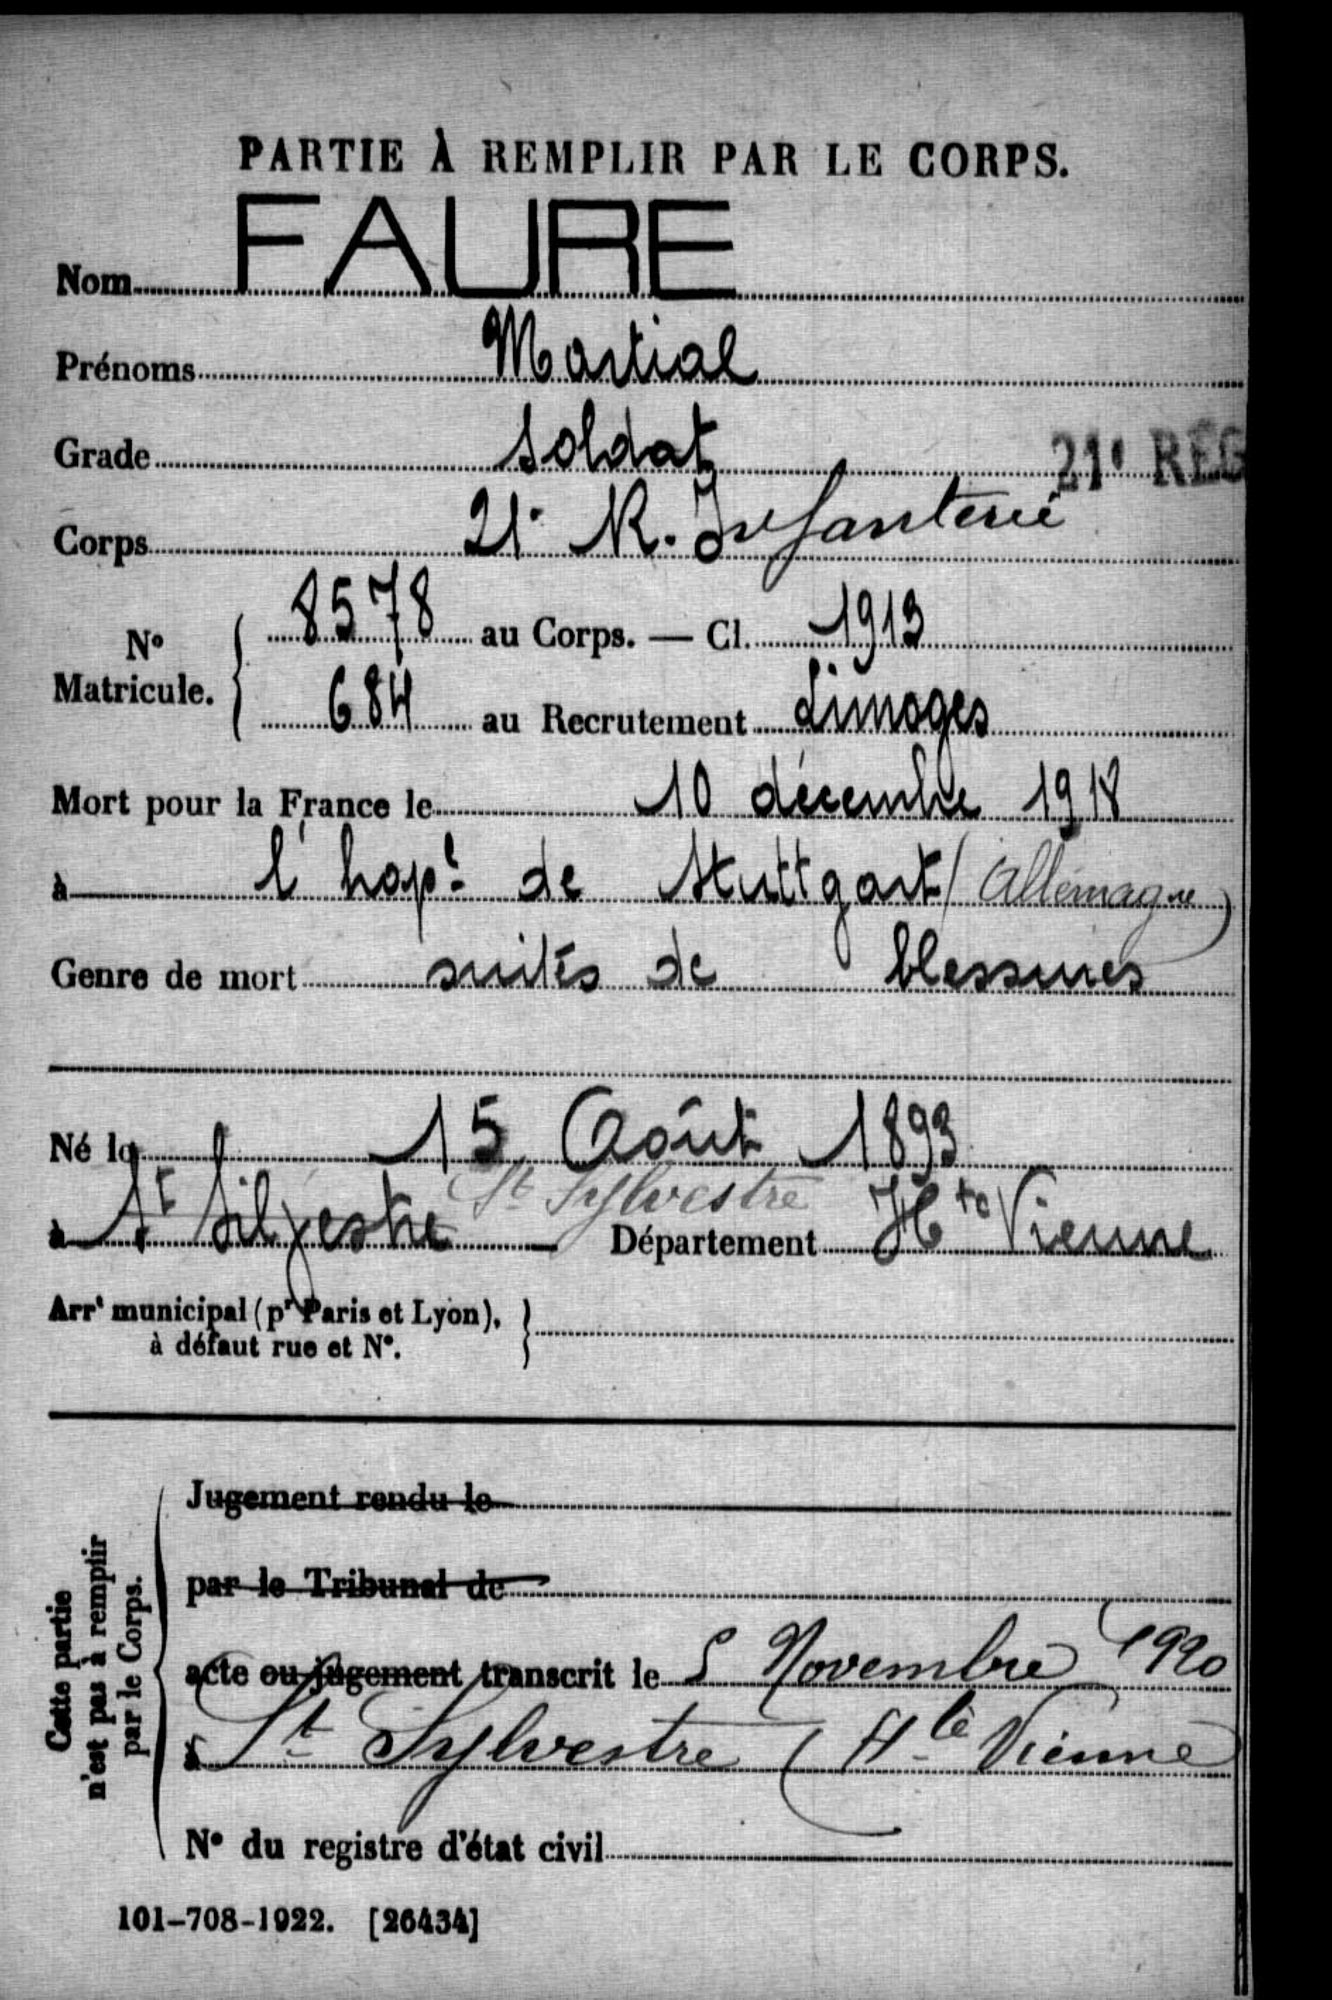 PARTIE À REMPLIR PAR LE CORPS.
Nom FAURE
Prénoms Martial
Grade Soldat
21e REG
Corps 21e R. Infanterie
N° Matricule. 8578 au Corps. — Cl. 1913
684 au Recrutement Limoges
Mort pour la France le 10 décembre 1918
à l'hopt de Stuttgart (Allemagne)
Genre de mort suites de blessures
Né le 15 Août 1893
St Sylvestre
à St Silvestre Département Hte Vienne
Arrt municipal (pr Paris et Lyon),
à défaut rue et N°.
Cette partie
n'est pas à remplir
par le Corps.
Jugement rendu le
par le Tribunal de
acte ou jugement transcrit le 5 Novembre 1920
à St Sylvestre (Hte Vienne
N° du registre d'état civil
101-708-1922. [26434]